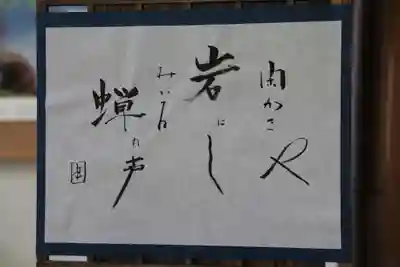 閑かさや
岩にし
み入る
蝉の声